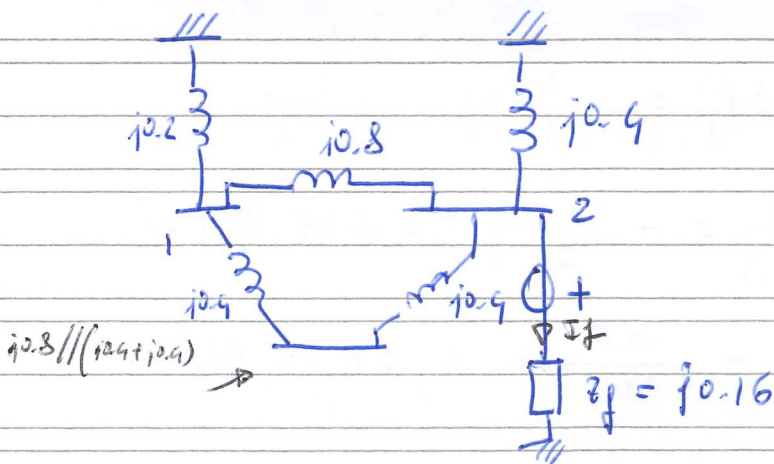 j0.2
j0.8
j0.4
1
2
j0.4
j0.4
+
If
j0.8//(j0.4+j0.4)
Zf = j0.16